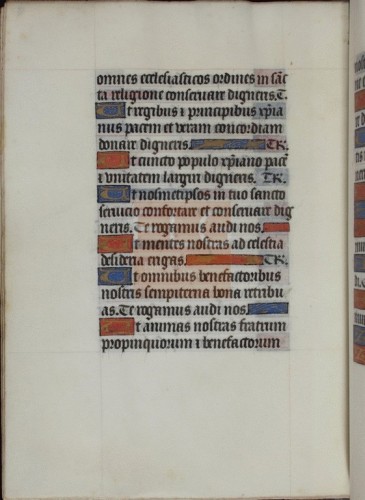 omnes ecclesiasticos ordines in sāc
ta religione conseruare digneris. T.
Et regibus ⁊ principibus xp̄ia
nis pacem et veram concordiam
donare digneris. Te R.
Et cuncto populo xp̄iano pacē
⁊ vnitatem largiri digneris. Te R.
Et nosmetipsos in tuo sancto
seruicio confortare et conseruare dig
neris. Te rogamus audi nos.
Et mentes nostras ad celestia
desideria erigas. Te R.
Et omnibus benefactoribus
nostris sempiterna bona retribu
as. Te rogamus audi nos.
Et animas nostras fratrum
propinquorum ⁊ benefactorum